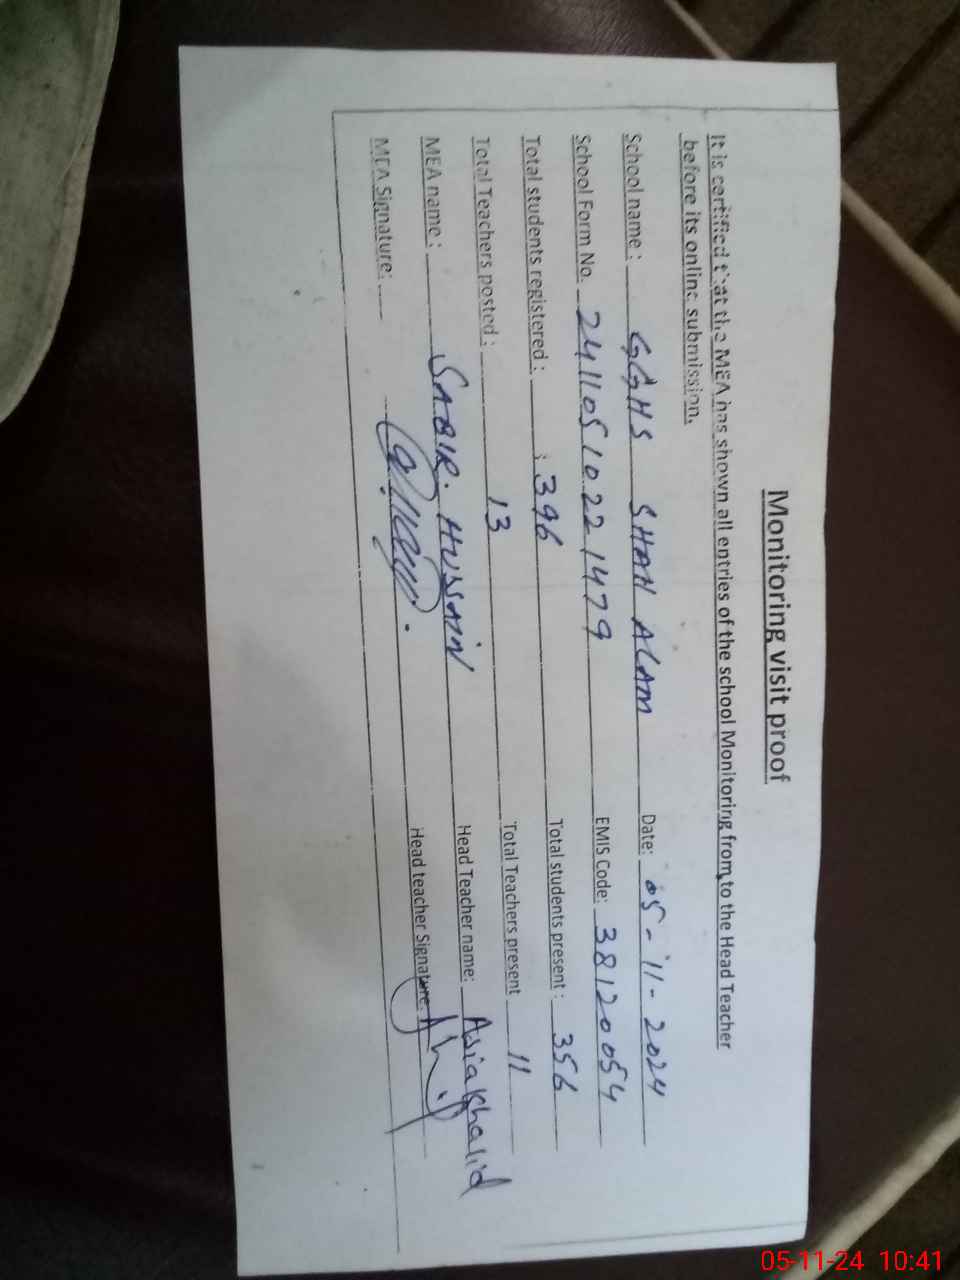 Monitoring visit proof
It is certified that the MEA has shown all entries of the school Monitoring from to the Head Teacher
before its online submission.
School name : GGHS SHAH ALAM Date: 05-11-2024
School Form No. 24110510221479 EMIS Code: 38120054
Total students registered : 396 Total students present : 356
Total Teachers posted : 13 Total Teachers present 11
MEA name : SABIR. HUSSAIN Head Teacher name: Asia Khalid
MEA Signature: Head teacher Signature:
05-11-24 10:41